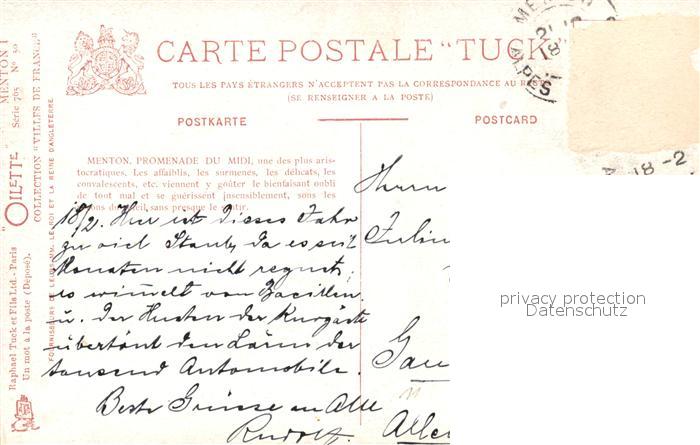 CARTE POSTALE "TUCK
TOUS LES PAYS ÉTRANGERS N'ACCEPTENT PAS LA CORRESPONDANCE AU
(SE RENSEIGNER A LA POSTE)
POSTKARTE
POSTCARD
MENTON. PROMENADE DU MIDI, une des plus aris-
tocratiques. Les affaiblis, les surmenés, les délicats, les
convalescents, etc. viennent y goûter le bienfaisant oubli
de tout mal et se guérissent insensiblement, sous les
sans presque le sentir.
18/2. Hier ist dieses Jahr
zu viel Staub, da es seit
Monaten nicht regnet;
es wimmelt von Bacillen
u. der Husten der Kurgäste
übertönt den Lärm der
tausend Automobile.
Beste Grüsse an Alle
Rudolf.
Herrn
Julin
Gau
Alle
ALPES
18 -2
MENTON
Série 705 Nº 50
"OILETTE"
COLLECTION "VILLES DE FRANCE"
Raphael Tuck et Fils Ltd.-Paris
Un mot à la poste (Déposé).
FOURNISSEURS DE LEURS MM. LE ROI ET LA REINE D'ANGLETERRE
privacy protection
Datenschutz